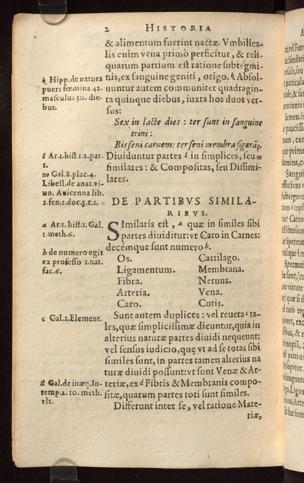 2 HISTORIA
& alimentum fuerint nactæ. Vmbilica-
lis enim vena primò perficitur, & reli-
quarum partium est ratione subtegmi-
nis, ex sanguine geniti, origo. k Absol-
uuntur autem communiter quadragin-
ta quinque diebus, iuxta hos duos ver-
sus:
Sex in lacte dies: ter sunt in sanguine
trini:
Bis seni carnem: ter seni membra figurāt.
Diuiduntur partes l in simplices, seu m
similares: & Compositas, seu Dissimi-
lares.
k Hipp. de natura
pueri fœmina 42.
masculus 30. die-
bus.
l Ar. 1. hist. 1. 2. par.
1.
m Gal. 8. plac. 4.
Libell. de anat. vi-
uo. Auicenna lib.
1. fen. 1. doc. 5. c. 1.
DE PARTIBVS SIMILA-
RIBVS.
Similaris est, a quæ in similes sibi
partes diuiditur: vt Caro in Carnes:
decémque sunt numero b.
Os. Cartilago.
Ligamentum. Membrana.
Fibra. Neruus.
Arteria. Vena.
Caro. Cutis.
a Ar. 1. hist. 1. Gal.
1. meth. 6.
b de numero egit
ex professo 1. nat.
fac. 6.
Sunt autem duplices: vel reuera c ta-
les, quæ simplicissimæ dicuntur, quia in
alterius naturæ partes diuidi nequeunt:
vel sensus iudicio, quę vt ad se totas sibi
similes sunt, in partes tamen alterius na
turæ diuidi possunt: vt sunt Venæ & Ar-
teriæ, ex d Fibris & Membranis compo-
sitæ, quarum partes toti sunt similes.
Differunt inter se, vel ratione Mate-
riæ,
c Gal. 1. Element.
d Gal. de inæq. In-
temp. 2. 10. meth.
vlt.